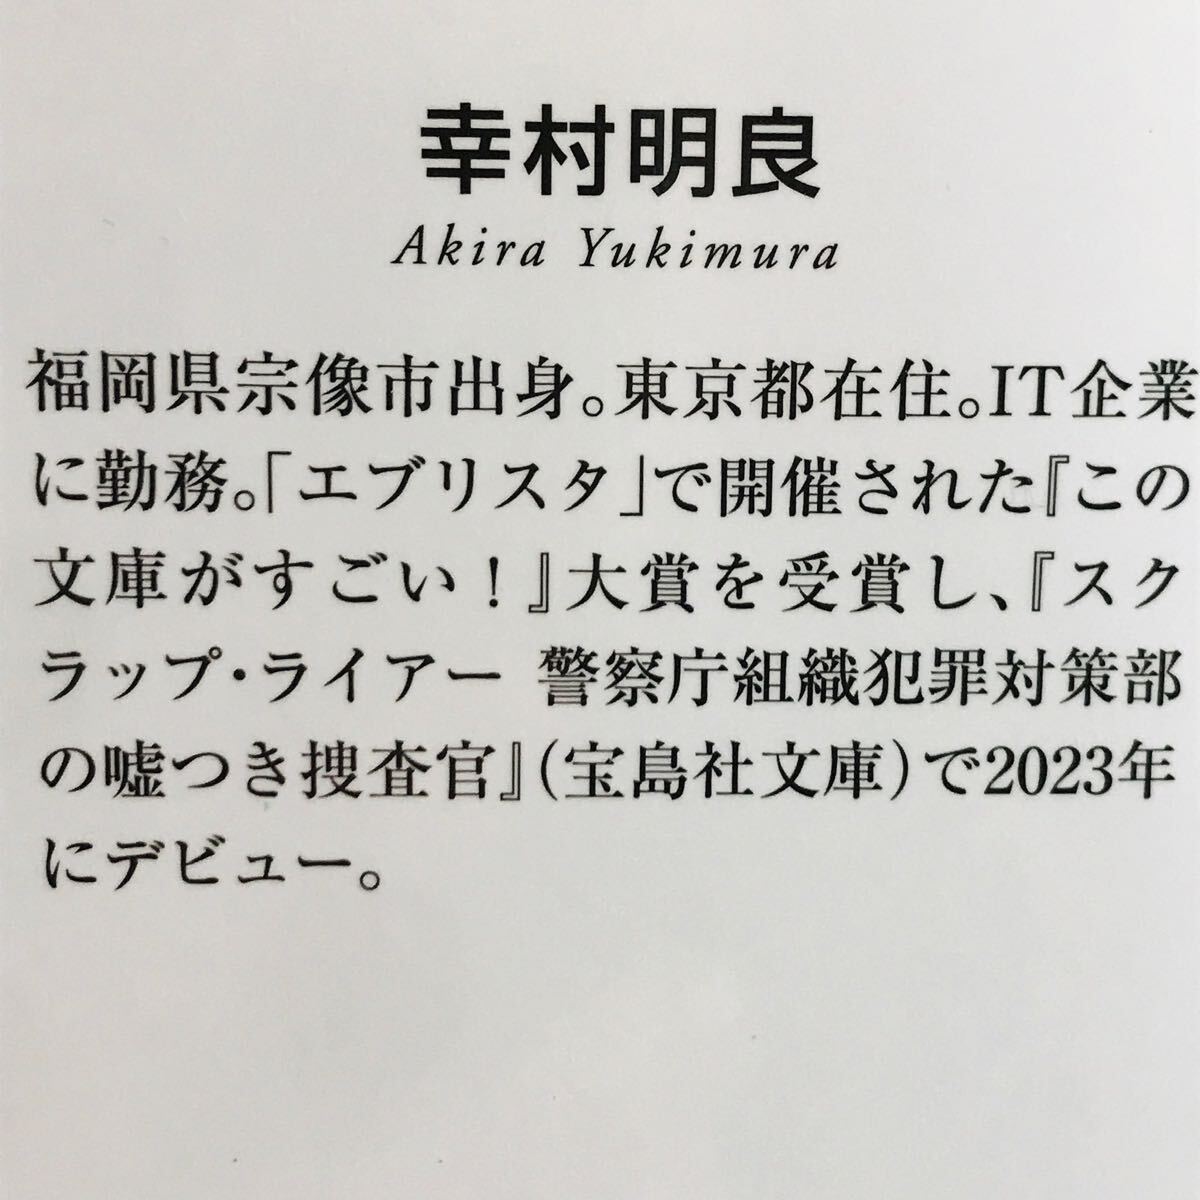 幸村明良
Akira Yukimura
福岡県宗像市出身。東京都在住。IT企業
に勤務。「エブリスタ」で開催された『この
文庫がすごい！』大賞を受賞し、『スク
ラップ・ライアー 警察庁組織犯罪対策部
の嘘つき捜査官』（宝島社文庫）で2023年
にデビュー。